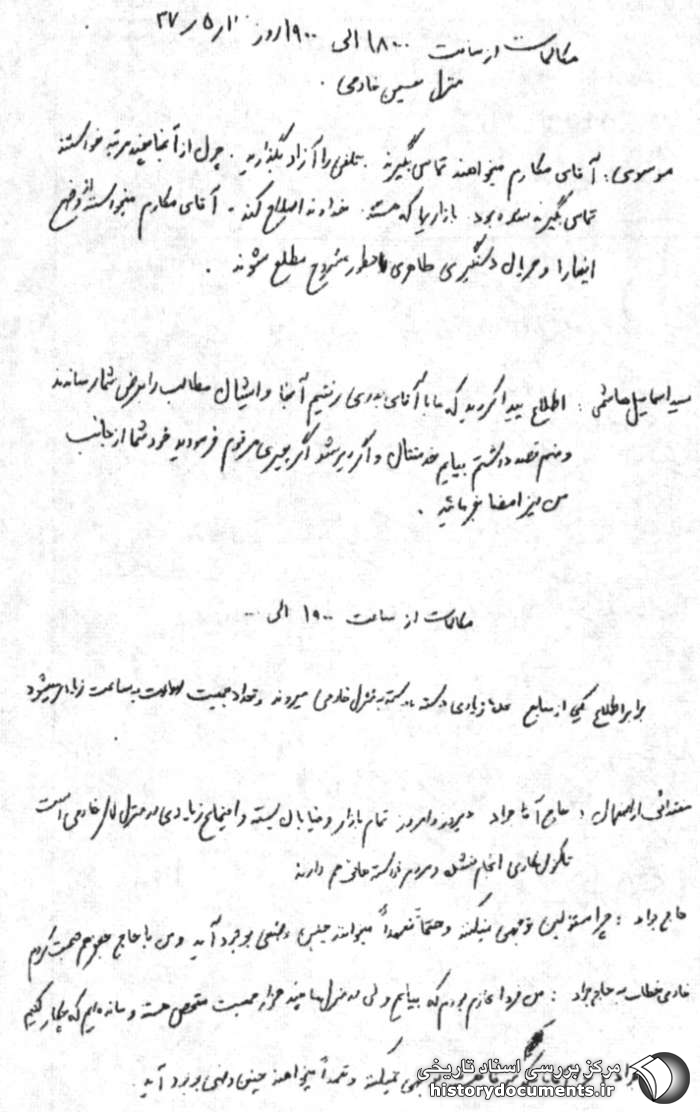 مکالمات از ساعت ۱۸۰۰ الی ۱۹۰۰ روز ۵ر ر۳۷
منزل حسین خادمی .
موسوی : آقای مکارم میخواهند تماس بگیرند . تلفن را آزاد بگذارید . چون از آنجا چند مرتبه خواستند
تماس بگیرند نبود . بازاریها که هستند . خداوند اصلاح کند . آقای مکارم میخواست از وضع
اینها را و جریان دستگیری طاهری بطور مشروح مطلع شوند .
سید اسماعیل هاشمی : اطلاع پیدا کردید که ما با آقای رفتیم آنجا و ایشان مطالب را بعرض شما رساندند
و منهم قصد داشتم بیایم خدمتتان و اگر دیر شد اگر چیزی مرقوم فرمودید خود شما از جانب
من نیز امضا بفرمائید .
مکالمات از ساعت ۱۹۰۰ الی ..
برابر اطلاع یکی از منابع عده زیادی دسته بدسته به منزل خادمی میروند و تعداد جمعیت ساعت به ساعت زیادتر میشود
از : حاج آقا جواد دیروز و امروز تمام بازار و خیابان بسته و اجتماع زیادی در منزل خادمی است
تاکنون کاری انجام نشده و مردم خواسته هائی هم دارند
حاج جواد : چرا مسئولین توجهی نمیکنند و حتماً تعمداً میخواهند چنین وضعی بوجود آید و من با حاج هم صحبت کردم
خادمی خطاب به حاج جواد : من فردا عازم بودم که بیایم ولی در منزل ما چند هزار جمعیت متحصن هستند و مانده ایم که چکار کنیم
نمیکنند و تعمداً میخواهند چنین وضعی بوجود آید .
مرکز بررسی اسناد تاریخی
historydocuments.ir